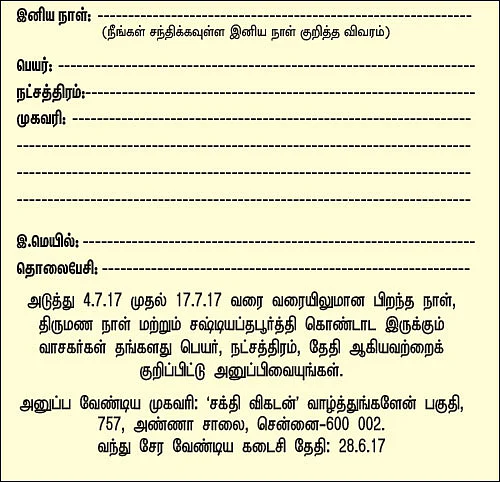 இனிய நாள்: ------------------------------------------------------------
(நீங்கள் சந்திக்கவுள்ள இனிய நாள் குறித்த விவரம்)
பெயர்: ------------------------------------------------------------
நட்சத்திரம்:------------------------------------------------------------
முகவரி: ------------------------------------------------------------
------------------------------------------------------------
------------------------------------------------------------
------------------------------------------------------------
இ.மெயில்: ------------------------------------------------------------
தொலைபேசி: ------------------------------------------------------------
அடுத்து 4.7.17 முதல் 17.7.17 வரை வரையிலுமான பிறந்த நாள்,
திருமண நாள் மற்றும் சஷ்டியப்தபூர்த்தி கொண்டாட இருக்கும்
வாசகர்கள் தங்களது பெயர், நட்சத்திரம், தேதி ஆகியவற்றைக்
குறிப்பிட்டு அனுப்பிவையுங்கள்.
அனுப்ப வேண்டிய முகவரி: ‘சக்தி விகடன்’ வாழ்த்துங்களேன் பகுதி,
757, அண்ணா சாலை, சென்னை-600 002.
வந்து சேர வேண்டிய கடைசி தேதி: 28.6.17